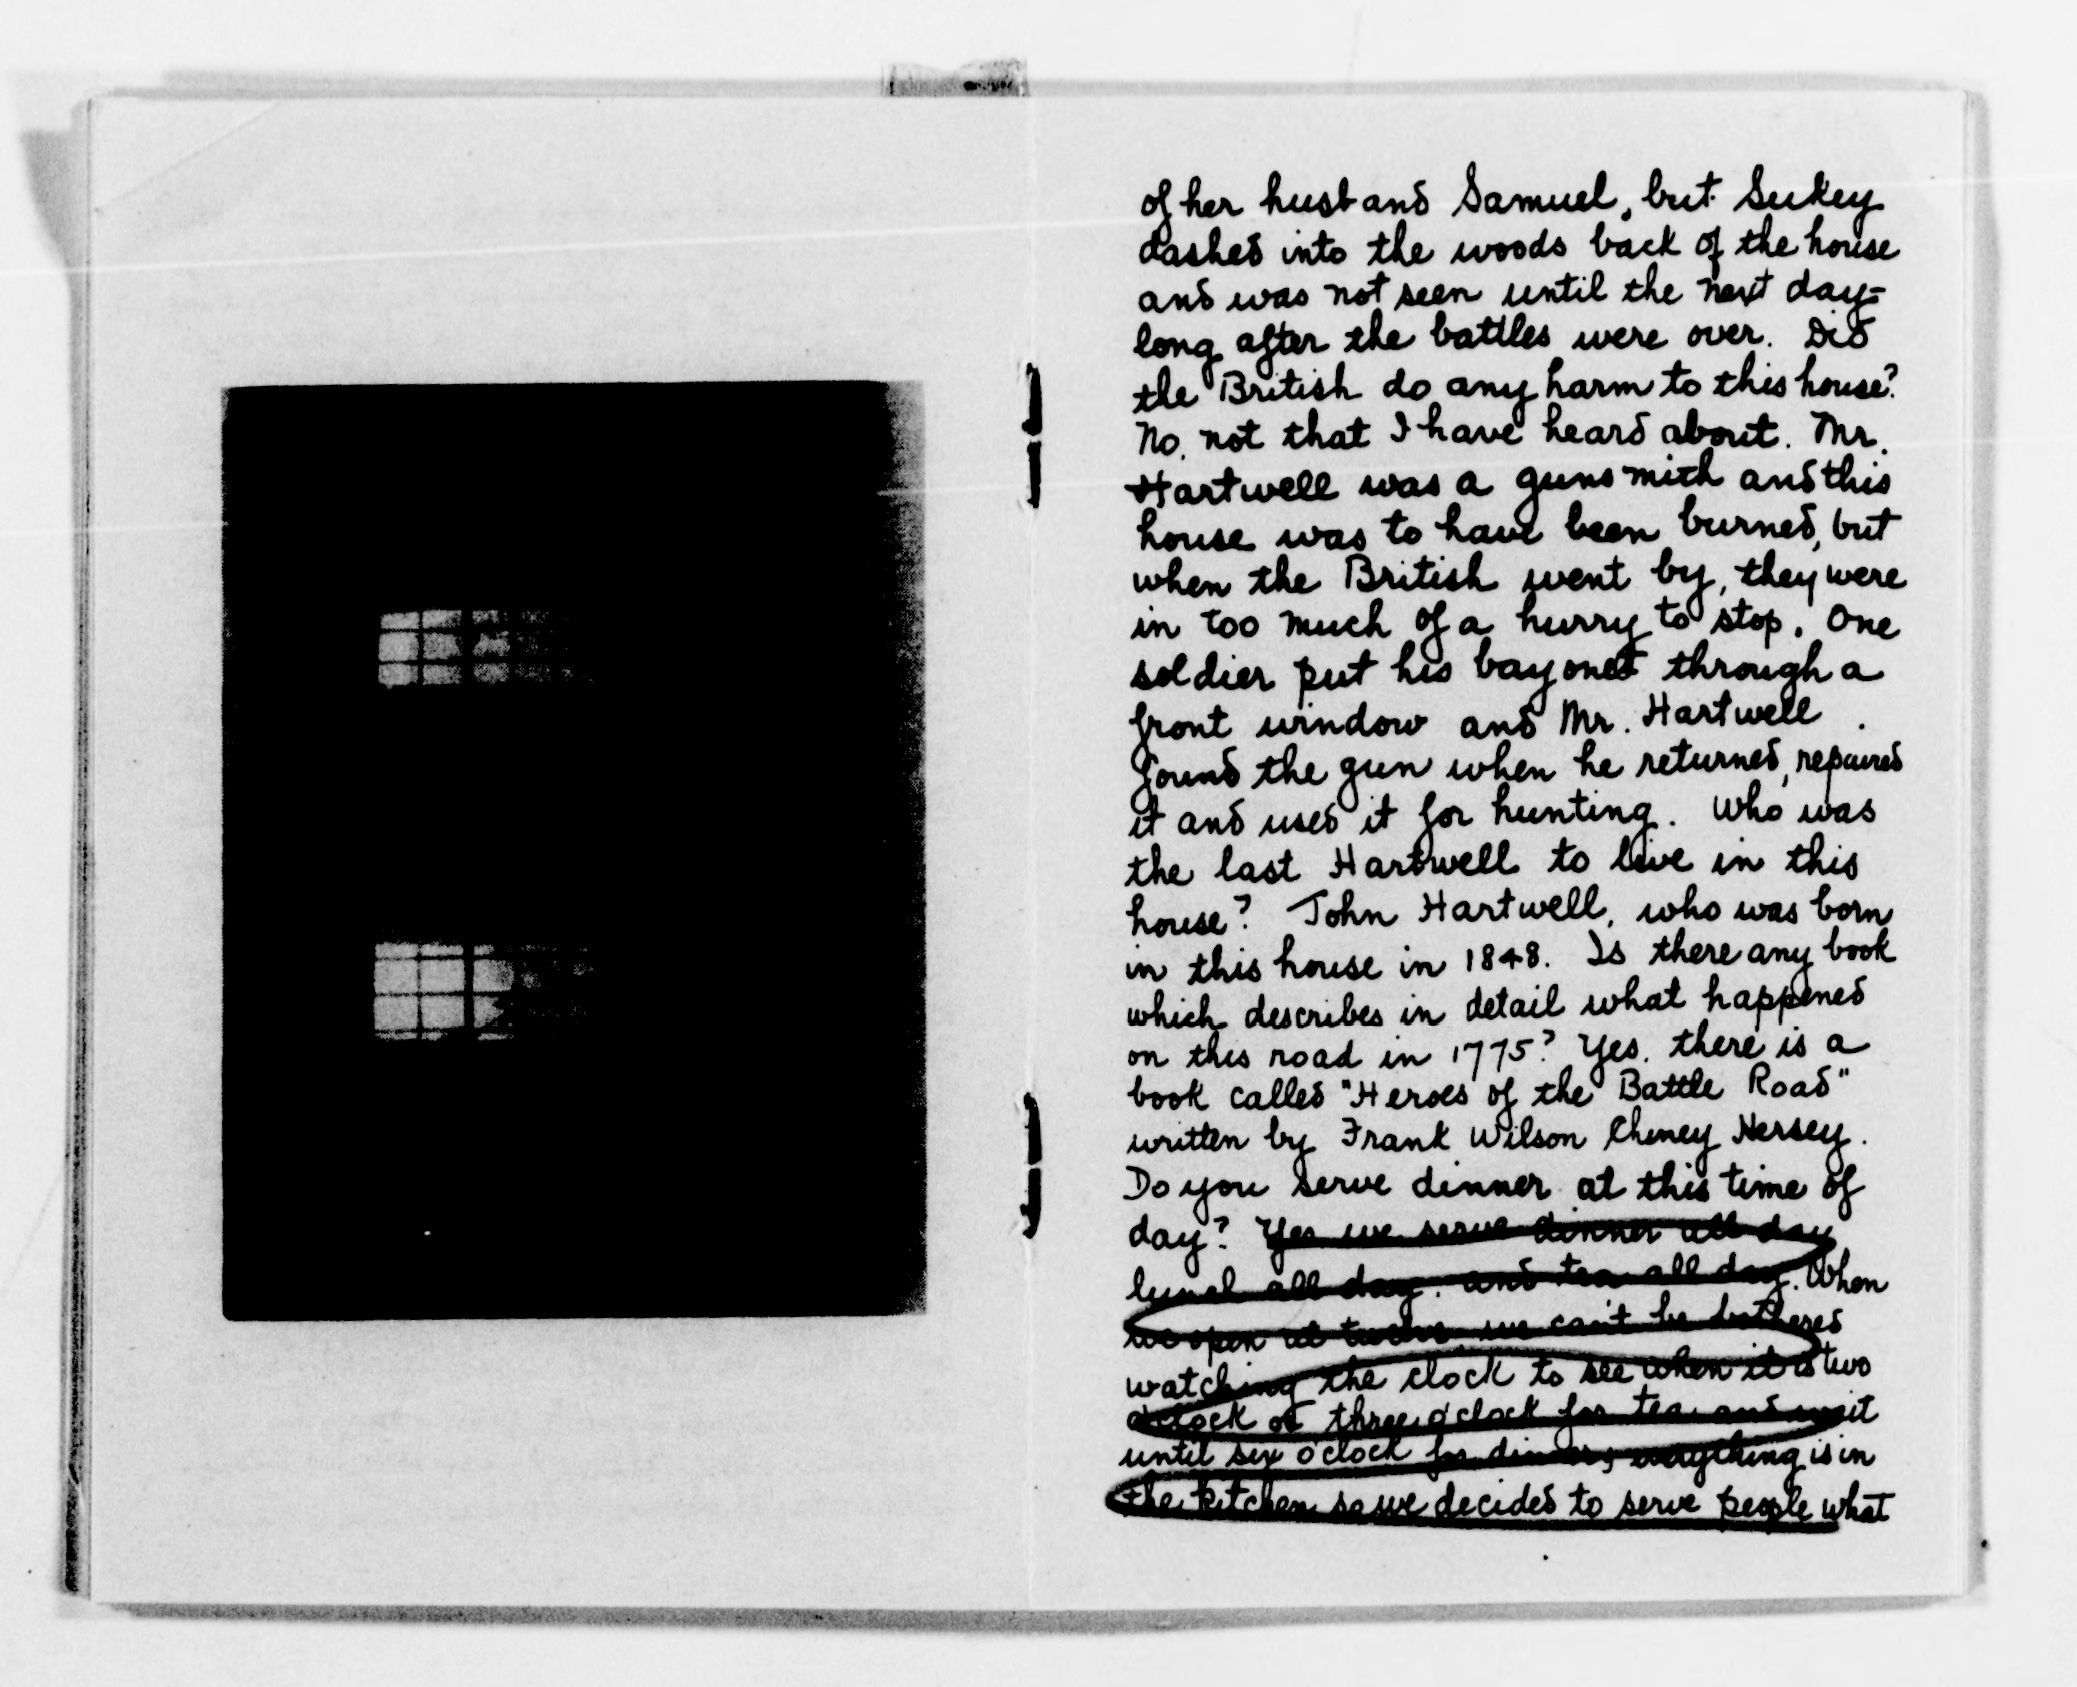 of her husband Samuel, but Sukey
dashed into the woods back of the house
and was not seen until the next day-
long after the battles were over. Did
the British do any harm to this house?
No, not that I have heard about. Mr.
Hartwell was a gunsmith and this
house was to have been burned, but
when the British went by, they were
in too much of a hurry to stop. One
soldier put his bayonet through a
front window and Mr. Hartwell
found the gun when he returned, repaired
it and used it for hunting. Who was
the last Hartwell to live in this
house? John Hartwell, who was born
in this house in 1848. Is there any book
which describes in detail what happened
on this road in 1775? Yes, there is a
book called "Heroes of the Battle Road"
written by Frank Wilson Cheney Hersey.
Do you serve dinner at this time of
day? Yes we serve dinner all day
lunch all day, and tea all day. When
we open at twelve we can't be bothered
watching the clock to see when it is two
o'clock or three o'clock for tea and wait
until six o'clock for dinner, everything is in
the kitchen so we decided to serve people what